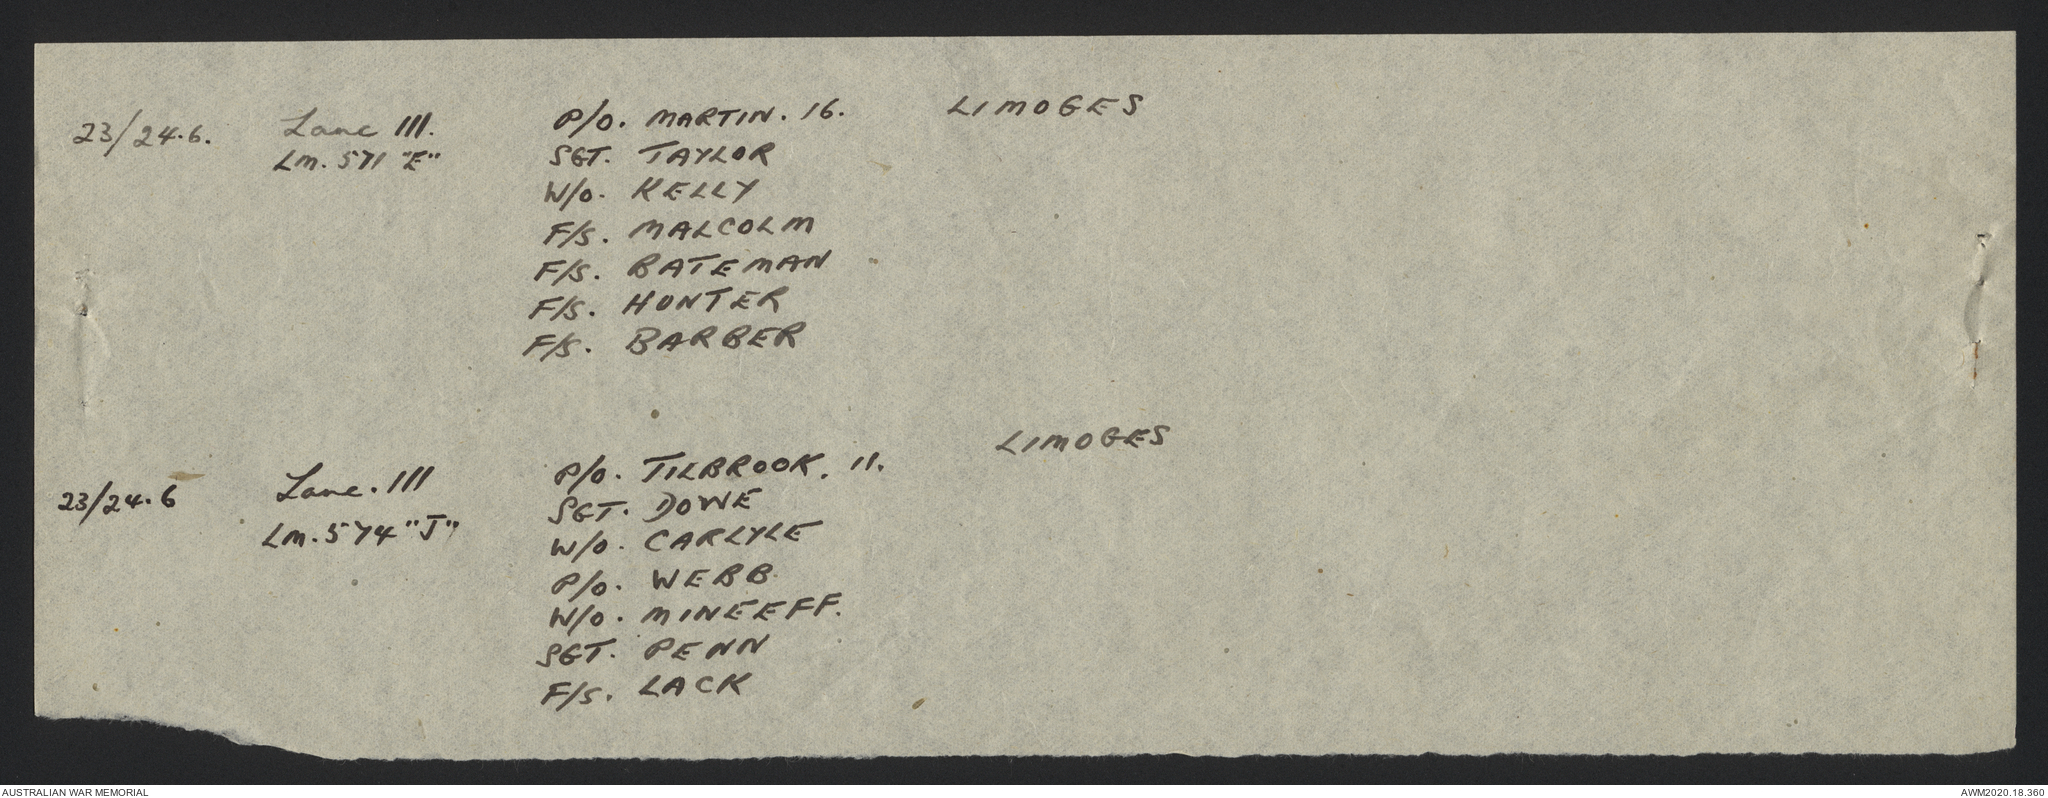 23/24.6. Lanc III. P/O. MARTIN. 16. LIMOGES
Lm. 571 "E" SGT. TAYLOR
W/O. KELLY
F/S. MALCOLM
F/S. BATEMAN
F/S. HUNTER
F/S. BARBER
23/24.6 Lanc. III P/O. TILBROOK. 11. LIMOGES
Lm. 574 "J" SGT. DOWE
W/O. CARLYLE
P/O. WEBB
W/O. MINEEFF.
SGT. PENN
F/S. LACK
AUSTRALIAN WAR MEMORIAL AWM2020.18.360